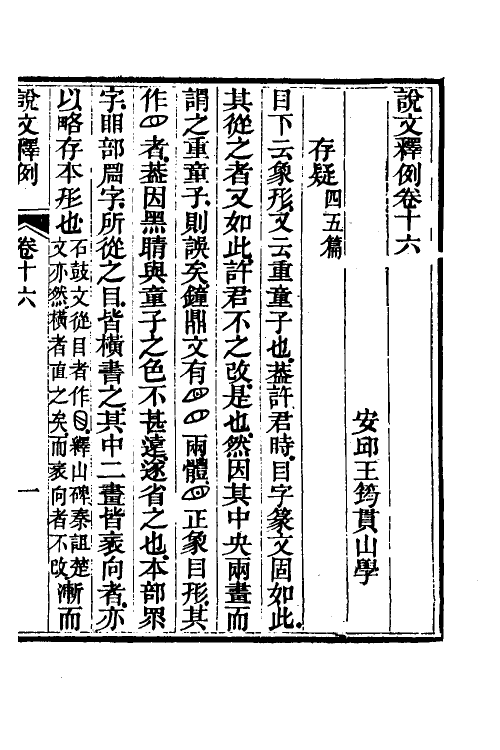 說文釋例卷十六
安邱王筠貫山學
存疑四五篇
目下云象形又云重童子也葢許君時目字篆文固如此
其從之者又如此許君不之改是也然因其中央兩畫而
謂之重童子則誤矣鐘鼎文有兩體正象目形其
作者葢因黑睛與童子之色不甚遠遂省之也本部眔
字䀠部字所從之目皆橫書之其中二畫皆衺向者亦
以略存本形也石鼓文從目者作釋山碑秦詛楚
文亦然橫者直之矣而衺向者不改漸而
說文釋例
卷十六
一